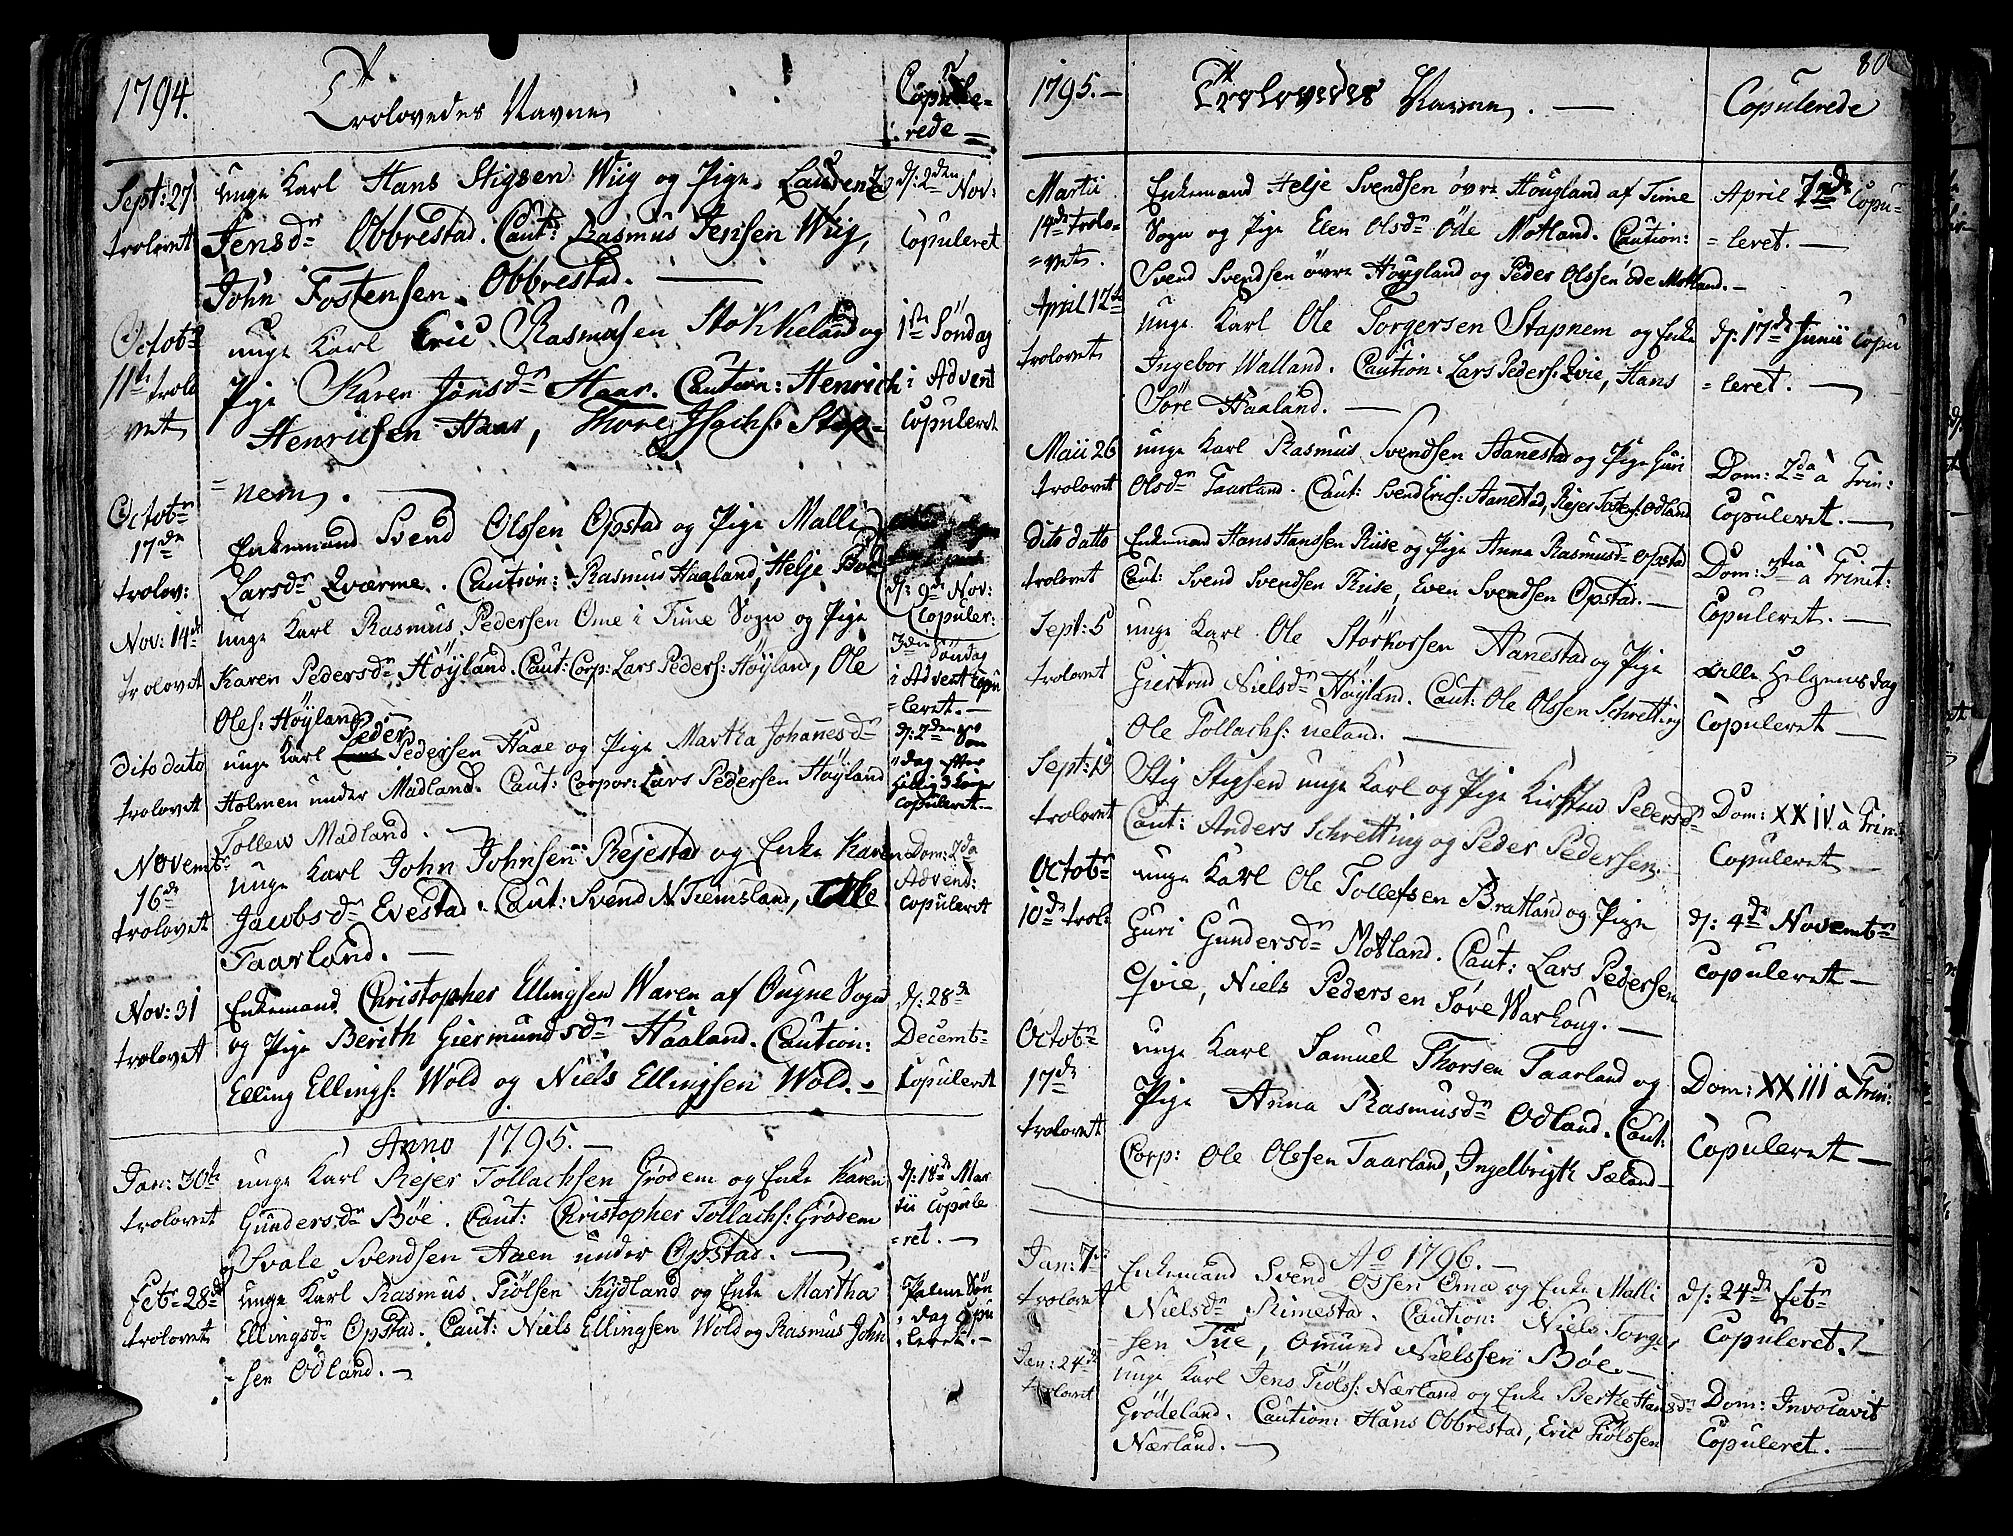 1794.
Trolovedes Navne
Copule-
rede
Sept: 27
trolovet
unge Karl Hans Stigsen Wiig og Pige
Jensdr Obbrestad. Caut: Rasmus Jensen Wiig,
John Tostensen Obbrestad.
d: 2den Nov:
Copuleret
Octobr
11te trolo
vet
unge Karl Eric Rasmusen Stokkeland og
Pige Karen Jonsdr Haar. Caution: Henrich
Henrichsen Haar, Thore Jsachs: Stop-
=nem.
1ste Söndag
i Advent
Copuleret
Octobr
17de
trolov:
Enkemand Svend Olssen Opstad og Pige Malli
Larsdr Qværme. Caution: Rasmus Haaland, Helje Böe
d: 9de Nov:
Copuler:
Nov: 14de
trolovet
unge Karl Rasmus Pedersen Ome i Time Sogn og Pige
Karen Pedersdr Höyland. Caut: Corp: Lars Peders: Höyland, Ole
Oles: Höyland
3die Söndag
i Advent Copu
=leret.
Dito dato
trolovet
unge Karl Peder Pedersen Haae og Pige Martha Johannesdr
Holmen under Madland. Caut: Corpor: Lars Pedersen Höyland
Tollew Madland.
d: 2den Sön
dag efter
Hellig 3 Konger
Copuleret
Novembr
16de
trolovet
unge Karl John Johnsen Rejestad og Enke Karen
Jacobsdr Evestad. Caut: Svend N Tiemsland,
Taarland.
Dom: 2da
Advend:
Copuleret
Nov: 31
trolovet
Enkemand Christopher Ellingsen Waren af Ougne Sogn
og Pige Berith Giermundsdr Haaland. Caution:
Elling Ellings: Wold og Niels Ellingsen Wold.
d: 28de
Decemb
Copuleret
Anno 1795.
Jan: 30te
trolovet
unge Karl Rejer Tollachsen Grödem og Enke Karen
Gundersdr Böe. Caut: Christopher Tollachs: Grödem
og Svale Svendsen Aaen under Opstad.
d: 18de Mar
tii Copule
=ret.
Febr 28de
trolovet
unge Karl Rasmus Tiölsen Kydland og Enke Martha
Ellingsdr Opstad. Caut: Niels Ellingsen Wold og Rasmus John
sen Odland.
Palme Sön
dag Copu
leret.
80
1795.
Trolovedes Navne.
Copulerede
Martii
14de trolo-
=vet.
Enkemand Helje Svendsen övre Hougland af Time
Sogn og Pige Elen Olsdr Öde Motland. Caution:
Svend Svendsen övre Hougland og Peder Olssen öde Motland.
April 7nde Copu-
=leret.
April 12te
trolovet
unge Karl Ole Torgersen Stapnem og Enke
Ingebor Walland. Caution: Lars Peders: Qvie, Hans
Söre Haaland.
d: 17de Junii Copu
=leret.
Maii 26
trolovet
unge Karl Rasmus Svendsen Aanestad og Pige Guri
Olsdr Taarland. Caut: Svend Erics: Aanestad, Rejer Tostens: Odland
Dom: 2da à Trin:
Copuleret.
Dito datto
trolovet
Enkemand Hans Hanssen Riise og Pige Anna Rasmusdr Opstad
Caut: Svend Svendsen Riise, Even Svendsen Opstad.
Dom: 3tia à Trinit:
Copuleret.
Sept: 5
trolovet
unge Karl Ole Störkorsen Aanestad og Pige
Giertrud Nielsdr Höyland. Caut: Ole Olssen Schretting
Ole Tollachs: Ueland.
Alle Helgensdag
Copuleret
Sept: 19
trolovet
Stig Stigsen unge Karl og Pige Kirsten Pedersdr
Caut: Anders Schretting og Peder Pedersen.
Dom: XXIV à Trin:
Copuleret
Octobr
10de trol:
unge Karl Ole Tollefsen Bratland og Pige
Guri Gundersdr Motland. Caut: Lars Pedersen
Qvie, Niels Pedersen Söre Warhoug.
d: 4de Novembr
Copuleret
Octobr
17de
trolovet
unge Karl Samuel Thorsen Taarland og
Pige Anna Rasmusdr Odland. Caut:
Corp: Ole Olssen Taarland, Ingelbrigt Sæland
Dom: XXIII à Trin:
Copuleret
Ao 1796.
Jan: 7de
trolovet
Enkemand Svend Ossen Oma og Enke Malli
Nielsdr Rimestad. Caution: Niels Torger
sen Tue, Omund Nielssen Böe.
d: 24de Febr
Copuleret.
Jan: 24de
trolovet
unge Karl Jens Tiölss: Nærland og Enke Berthe Hansdr
Grödeland. Caution: Hans Obbrestad, Eric Tiölssen
Nærland.
Dom: Invocavit
Copuleret.